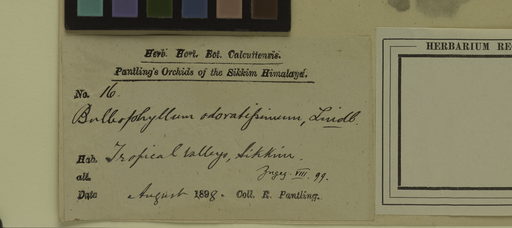 Herb. Hort. Bot. Calcuttensis.
Pantling's Orchids of the Sikkim Himalaya.
No. 16.
Bulbophyllum odoratissimum, Lindl.
Hab. Tropical Valleys, Sikkim.
alt. VIII. 99.
Date August 1898. Coll. R. Pantling.
HERBARIUM